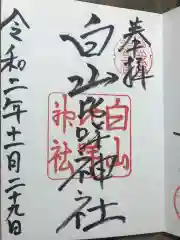 奉拝
白山比咩神社
白山
神社
令和二年十一月二十九日